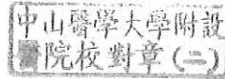 中山醫學大學附設
醫院校對章(二)